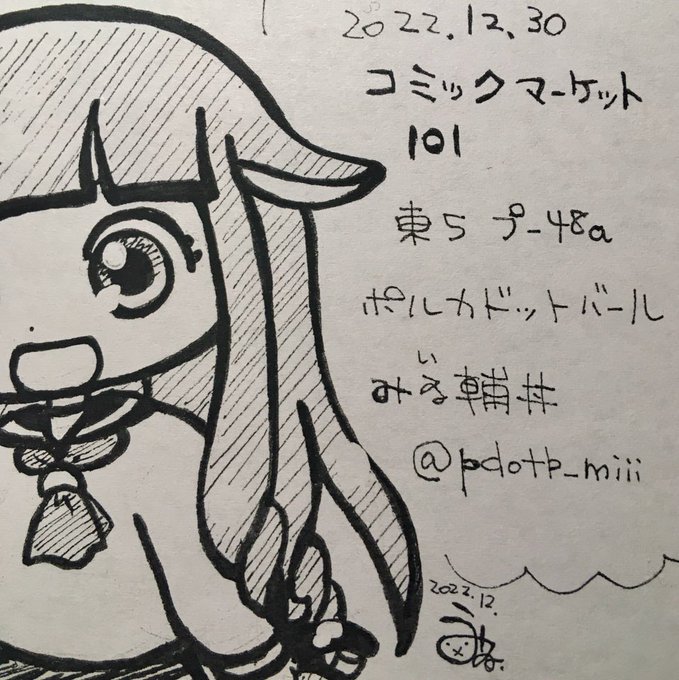 2022.12.30
コミックマーケット
101
東5 プ-48a
ポルカドットバール
みゐ輔丼
い
@pdotb_miii
2022.12.